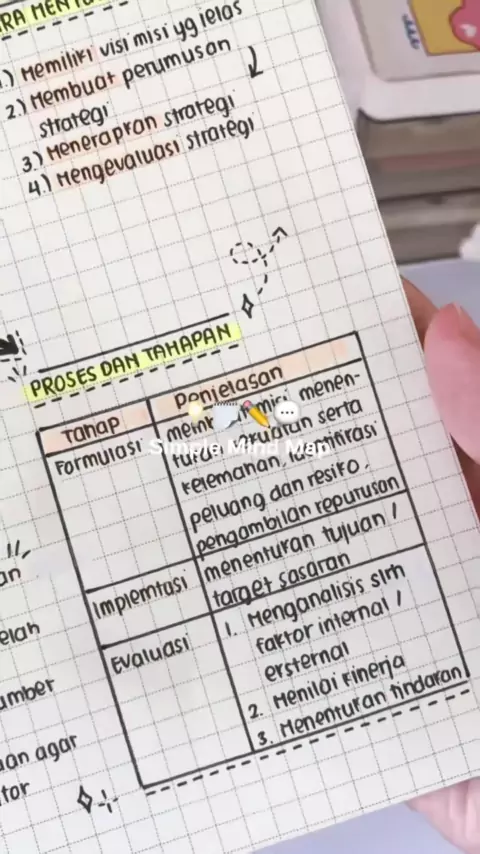 RA MENYU
1.) Memiliki visi misi yg jelas
2.) Membuat perumusan
strategi
3.) Menerapkan strategi
4.) Mengevaluasi strategi
PROSES DAN TAHAPAN
Tahap
Penjelasan
Formulasi
misi, menen-
serta
kelemahan,
peluang dan resiko,
pengambilan keputusan
Implemtasi
menentukan tujuan /
target sasaran
Evaluasi
1. Menganalisis slrh
faktor internal /
eksternal
2. Menilai kinerja
3. Menentukan tindakan
Simple Mind Map
an
elah
umber
an agar
tor